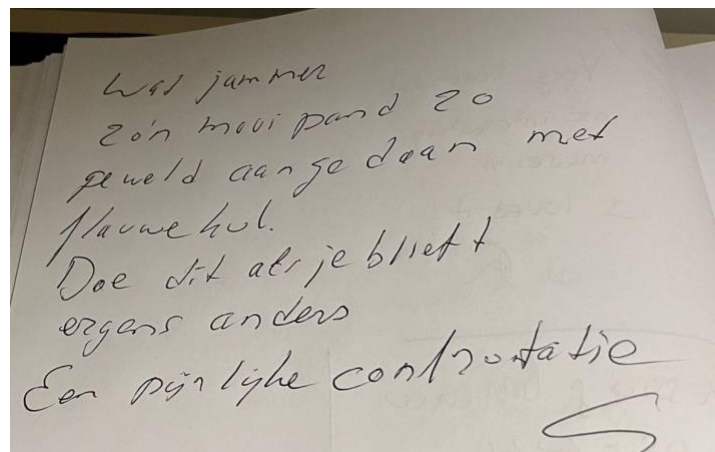 Wat jammer
zo'n mooi pand zo
geweld aangedaan met
flauwekul.
Doe dit alsjeblieft
ergens anders
Een pijnlijke confrontatie